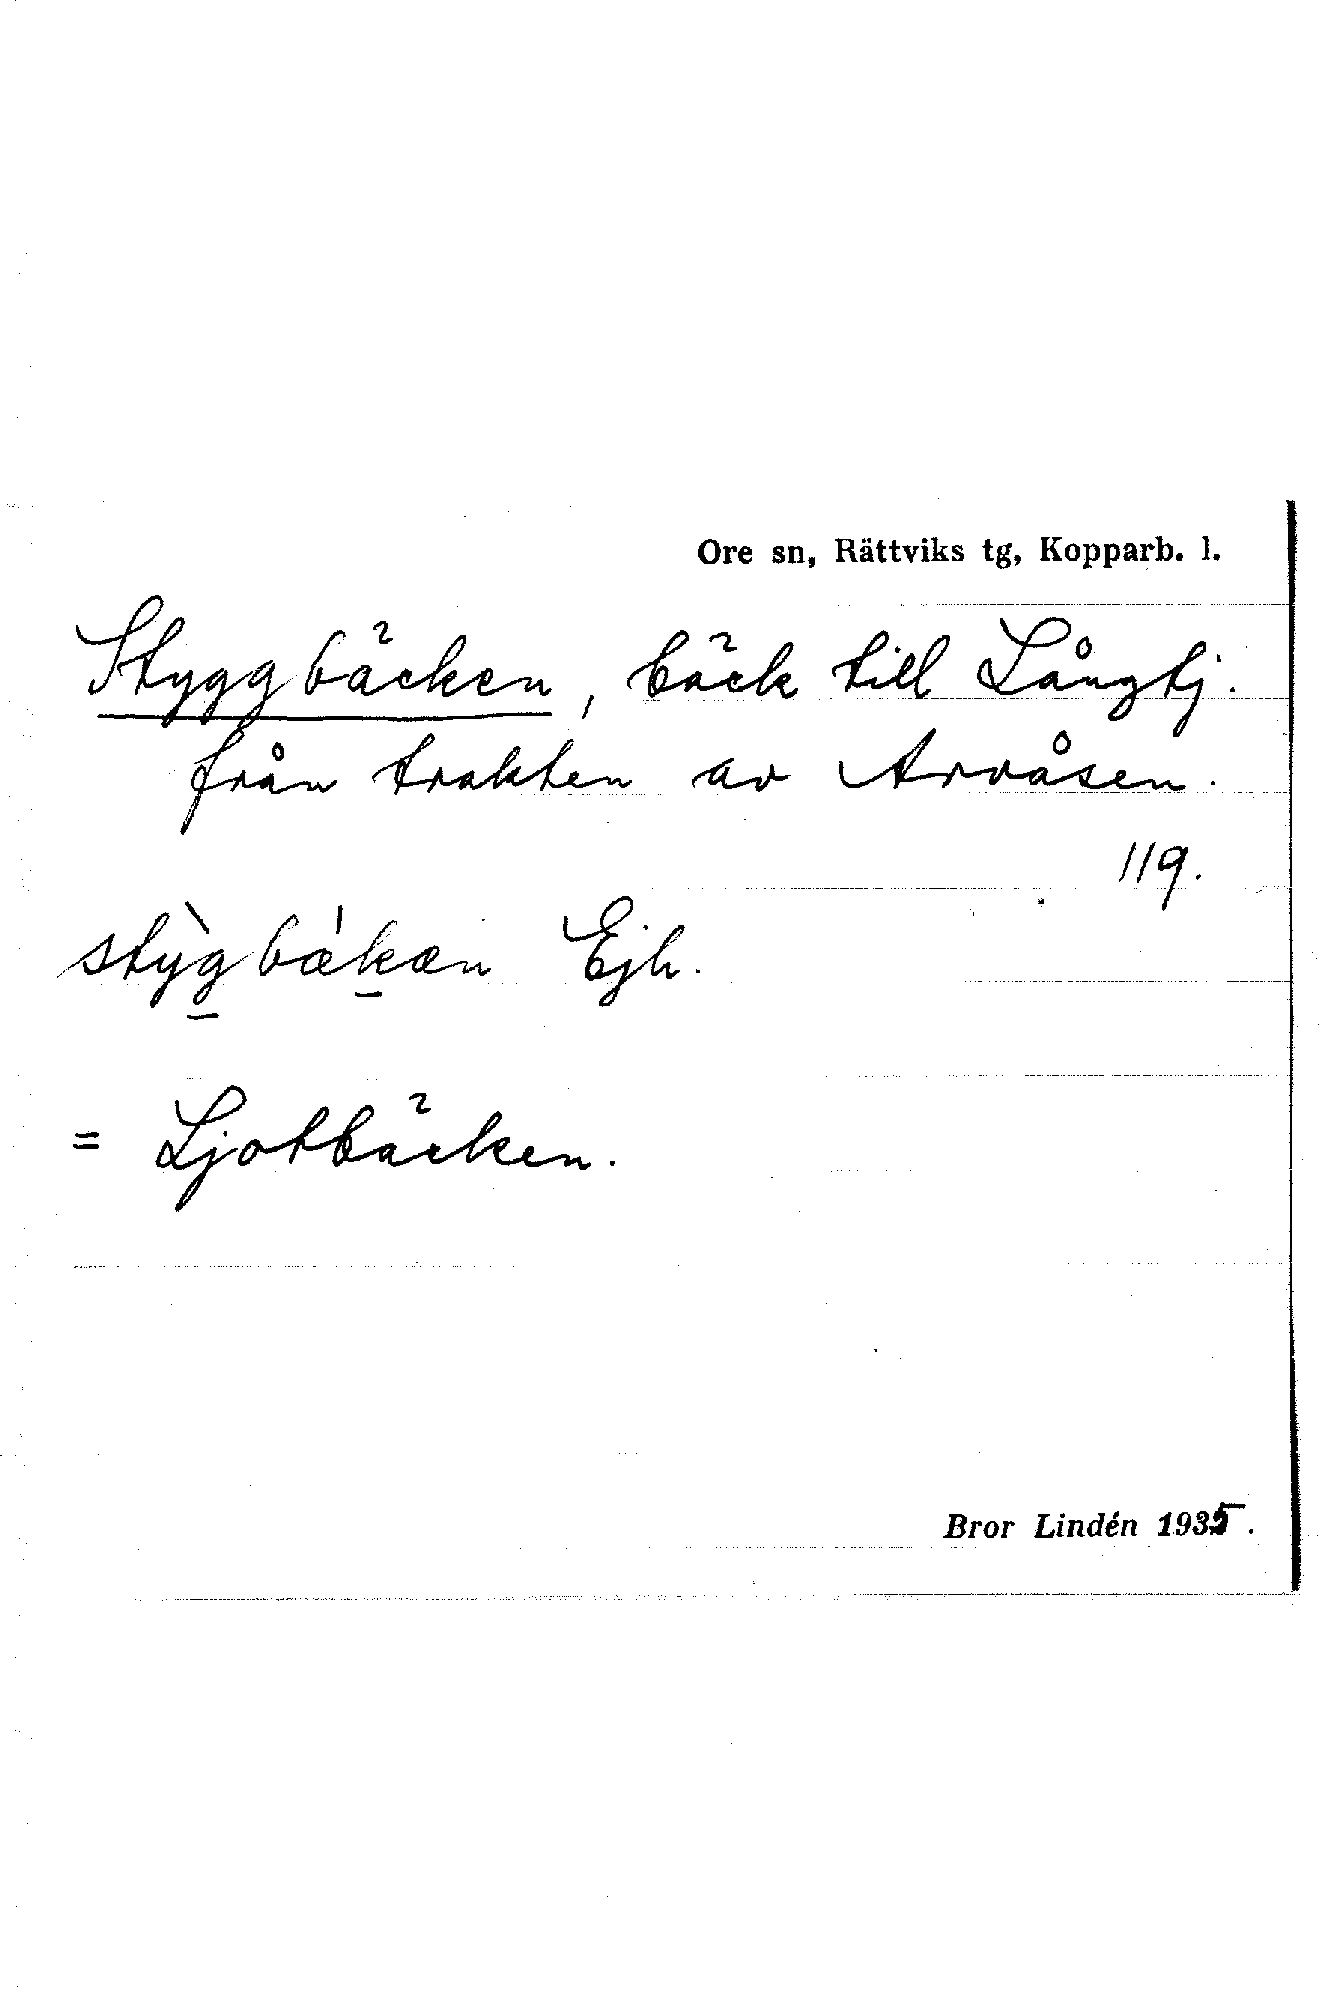 Ore sn, Rättviks tg, Kopparb. l.
Styggbäcken, bäck till Långtj.
från trakten av Arvåsen.
119.
sty̆̀g̲bǽk̲æn Ejh.
= Ljotbäcken.
Bror Lindén 1935.